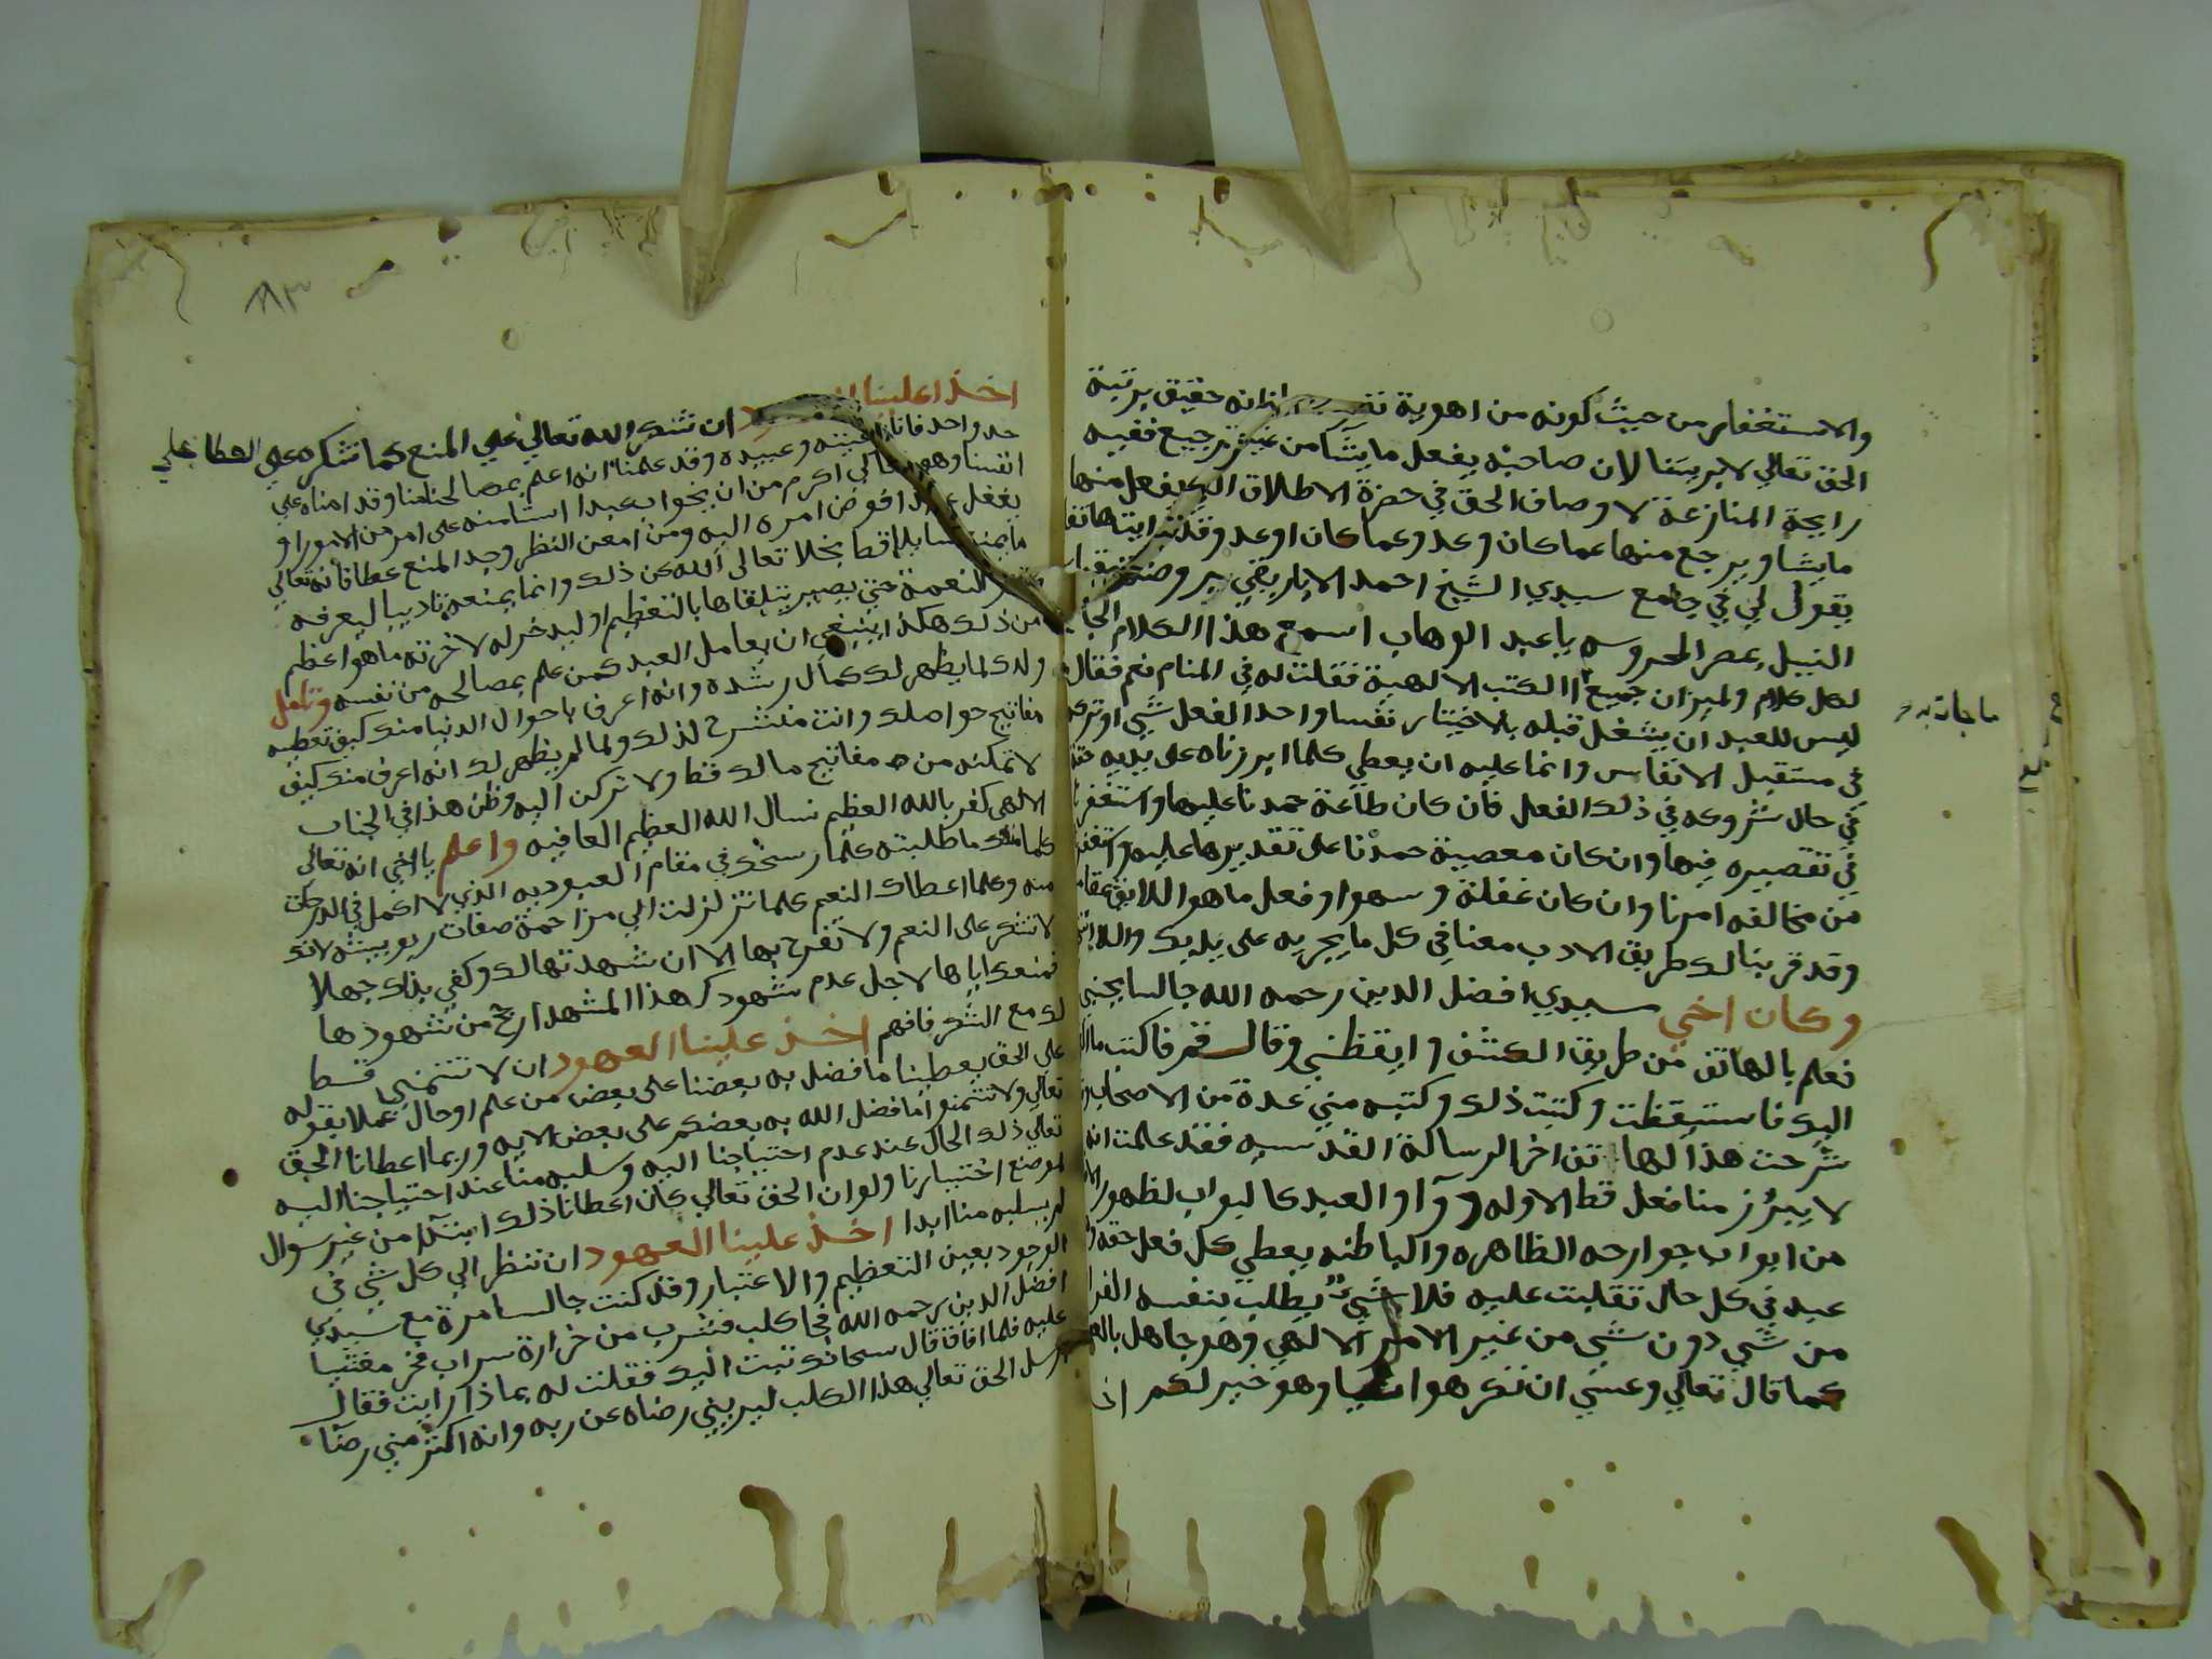 والاستغفار من حيث كونه من اهوية انه حقيق برتبة
الحق تعالي لا يريسنا لان صاحبه يفعل ما يشا من غير ترجيع ففيه
رايحة المنازعة لاوصاف الحق في حضرة الاطلاق يفعل منها
ما يشا ويرجع منها عما كان وعد وعما كان اوعد وقد رايت هاتفا
يقول لي في جامع سيدي الشيخ احمد الاباريقي بروضة
النيل بمصر المحروسه يا عبد الوهاب اسمع هذا الكلام
لكل كلام ولميزان جميع الكتب الالهية فقلت له في المنام نعم فقال
ليس للعبد ان يشغل قبله بالاختيار نفسا واحدا لفعل شي او تركه
في مستقبل الانفاس وانما عليه ان يعطي كلما ابرزناه على يديه حقه
في حال شروعه في ذلك الفعل فان كان طاعة حمدنا عليها واستغفرنا
في تقصيره فيها وان كان معصية حمدنا على تقديرها عليه واستغفر
من مخالفه امرنا وان كان غفلة وسهوا وفعل ما هو اللايق
وقد قربنا لك طريق الادب معنا في كل ما يجريه على يديك
وكان اخي سيدي افضل الدين رحمه الله جالسا بجنبي
فعلم بالهاتف من طريق الكشف وايقظني وقال قم فاكتب ما
اليك فاستيقظت وكتبت ذلك وكتبه مني عدة من الاصحاب
شرحت هذا الهاتف اخر الرسالة القدسيه فقد علمت انه
لا يبرز منا فعل قط الا وله والعبد كالبواب لظهور
من ابواب جوارحه الظاهره والباطنه يعطي كل فعل حقه
عبد في كل حال تقلبت عليه فلا شي يطلب بنفسه
من شي دون شي من غير الامر الالهي وهو جاهل
كما قال تعالي وعسي ان تكرهوا شيا وهو خير لكم
ما جات به
اخذ علينا ان نشكر الله تعالي علي المنع كما نشكره علي العطا علي
حد واحد فاننا وعبيده وقد علمنا انه اعلم بمصالحنا منا وقد امناه علي
انفسنا وهو تعالي اكرم من ان يخون عبدا استامنه على امر من الامور او
يغفل فوض امره اليه ومن امعن النظر وجد المنع عطا فانه تعالي
بخلا تعالى الله عن ذلك وانما يمنعه تاديبا ليعرفه
النعمة حتى يصير يتلقاها بالتعظيم او ليدخر له لاخرته ما هو اعظم
من ذلك هكذا ينبغي ان يعامل العبد كمن علم بمصالحه من نفسه وتامل
ولدك لما يظهر لك كمال رشده وانه اعرف باحوال الدنيا منك كيف تعطيه
مفاتيح حواصلك وانت منشرح لذلك ولما لم يظهر لك انه اعرف منك كيف
لا تمكنه من مفاتيح مالك قط ولا تركن اليه وظن هذا في الجناب
الالهي كفر بالله العظيم نسال الله العظيم العافيه واعلم يا اخي انه تعالى
كلما منعك ما طلبته كلما رسخك في مقام العبوديه الذي لا اكمل في الدرجات
منه وكلما اعطاك النعم كلما تزلزلت الي مزاحمة صفات ربوبيته لانك
لا تشكر على النعم ولا تفرح بها الا ان شهدتها لك وكفي بذلك جهلا
فمنعك اياها لاجل عدم شهودك هذا المشهد ارجح من شهودها
لك مع الشكر فافهم اخذ علينا العهود ان لا نتمني قط
على الحق يعطينا ما فضل به بعضنا على بعض من علم او حال عملا بقوله
تعالي ولا تتمنوا ما فضل الله به بعضكم على بعض الايه وربما اعطانا الحق
تعالي ذلك الحال عند عدم احتياجنا اليه وسلبه منا عند احتياجنا اليه
لموضع اختيارنا ولو ان الحق تعالي كان اعطانا ذلك ابتدآ من غير سوال
لم يسلبه منا ابدا اخذ علينا العهود ان ننظر الي كل شي في
الوجود بعين التعظيم والاعتبار وقد كنت جالسا مرة مع سيدي
افضل الدين رحمه الله فجا كلب فشرب من خرارة سراب فخر مغشيا
عليه فلما افاق قال سبحانك تبت اليك فقلت له بماذا رايت فقال
ارسل الحق تعالي هذا الكلب ليريني رضاه عن ربه وانه اكثر مني رضا